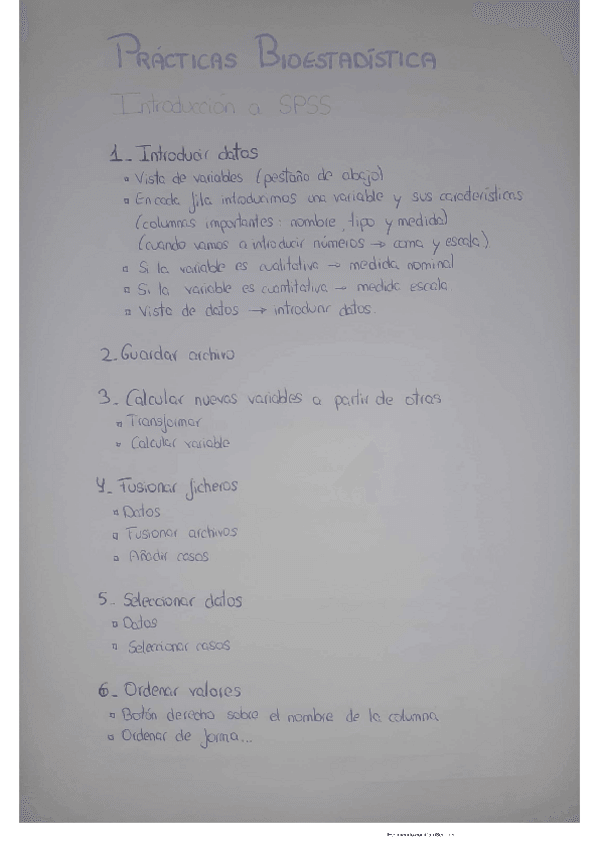 PRÁCTICAS BIOESTADÍSTICA
Introducción a SPSS
1_ Introducir datos
▫ Vista de variables (pestaña de abajo)
▫ En cada fila introducimos una variable y sus características
(columnas importantes: nombre, tipo y medida)
(cuando vamos a introducir números → coma y escala)
▫ Si la variable es cualitativa → medida nominal
▫ Si la variable es cuantitativa → medida escala
▫ Vista de datos → introducir datos.
2. Guardar archivo
3_ Calcular nuevas variables a partir de otras
▫ Transformar
▫ Calcular variable
4_ Fusionar ficheros
▫ Datos
▫ Fusionar archivos
▫ Añadir casos
5_ Seleccionar datos
▫ Datos
▫ Seleccionar casos
6_ Ordenar valores
▫ Botón derecho sobre el nombre de la columna
▫ Ordenar de forma...